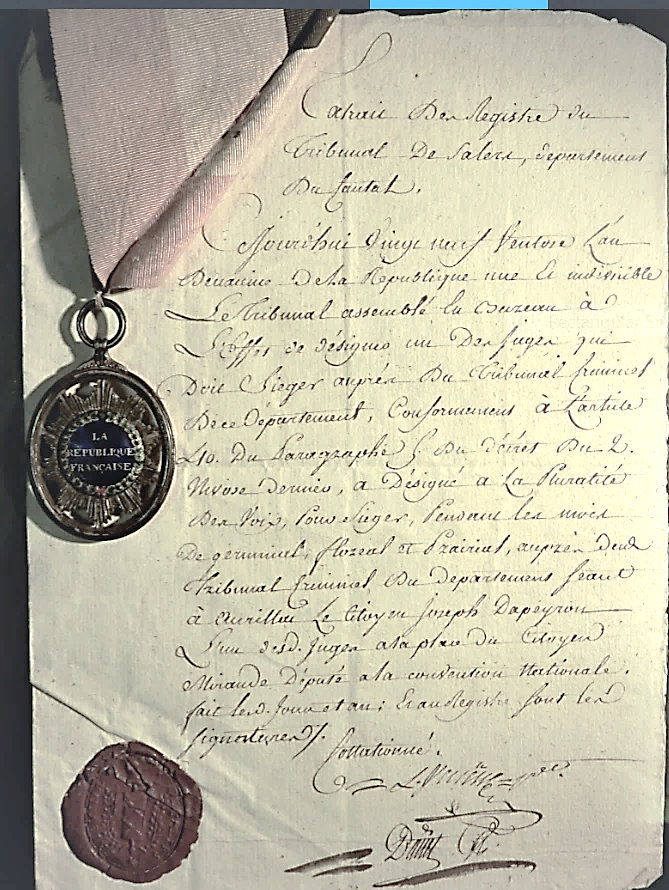 Extrait Des Registre du
Tribunal De Salers, departement
Du Cantal.
Cejourd'hui Vingt neuf Ventose L'an
Deuxieme De La Republique une et indivisible
Le Tribunal assemblé en Bureau à
L'effet de désigner un Des juges qui
Doit Sieger auprés Du Tribunal Criminel
De ce Département, Conformement à L'article
Du Paragraphe 5. Du décret Du 2.
Nivose dernier, a Désigné a La Pluralité
Des Voix, Pour Sieger, Pendant les mois
De germinal, floreal et Prairial, auprès dudt
Tribunal Criminel Du departement Seant
à aurillac Le Citoyen Joseph Dapeyron
L'un desd. Juges a la place du Citoyen
Mirande Député a la convention Nationale.
fait lesd. Jour et an; Et au Registre sont les
signatures
Collationné.
LA
RÉPUBLIQUE
FRANÇAISE